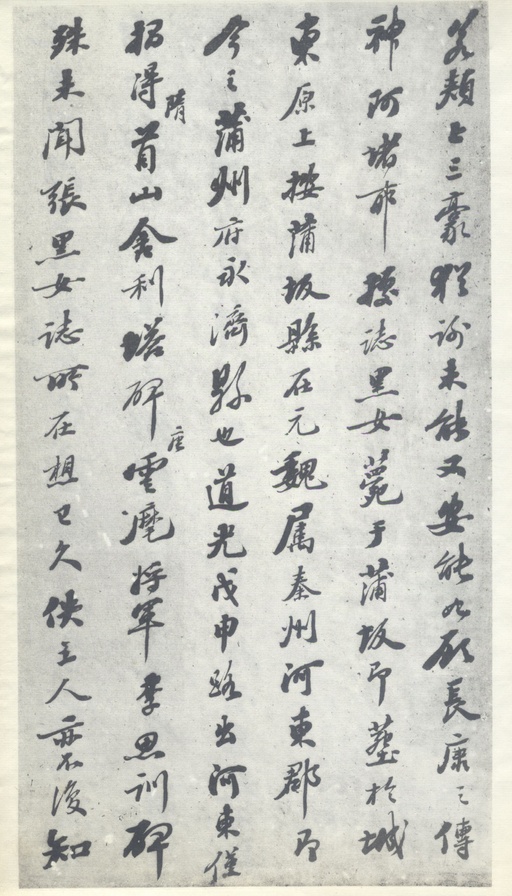 若頰上三豪猶謝未能又安能如顧長康之傳
神阿堵耶據誌黑女薨于蒲坂即葬於城
東原上按蒲坂縣在元魏屬秦州河東郡即
今之蒲州府永濟縣也道光戊申路出河東僅
拓得隋首山舍利塔碑唐雲麾將軍李思訓碑
殊未聞張黑女誌所在想已久佚主人亦不復知